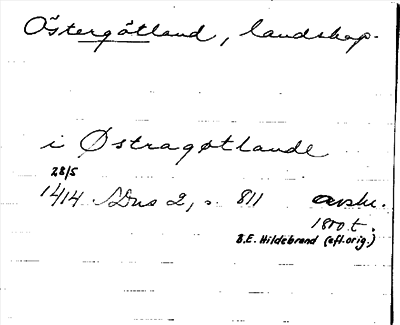 Östergötland, landskap.
i Østragøtlande
28/5
1414 SDns 2, s. 811 avskr.
1800 t.
B.E. Hildebrand (eft. orig.)